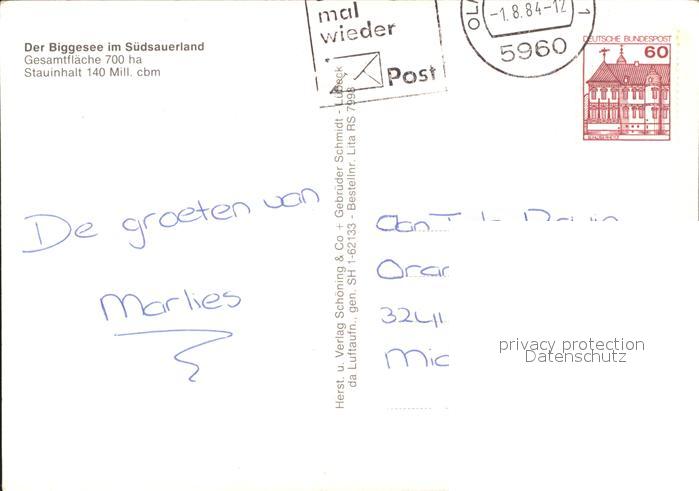 Der Biggesee im Südsauerland
Gesamtfläche 700 ha
Stauinhalt 140 Mill. cbm
mal
wieder
Post
-1.8.84-12
5960
DEUTSCHE BUNDESPOST
60
De groeten van
Marlies
Herst. u. Verlag Schöning & Co + Gebrüder Schmidt - Lübeck
da Luftaufn., gen. SH 1-62133 - Bestellnr. Lita RS 7998
aan
privacy protection
Datenschutz